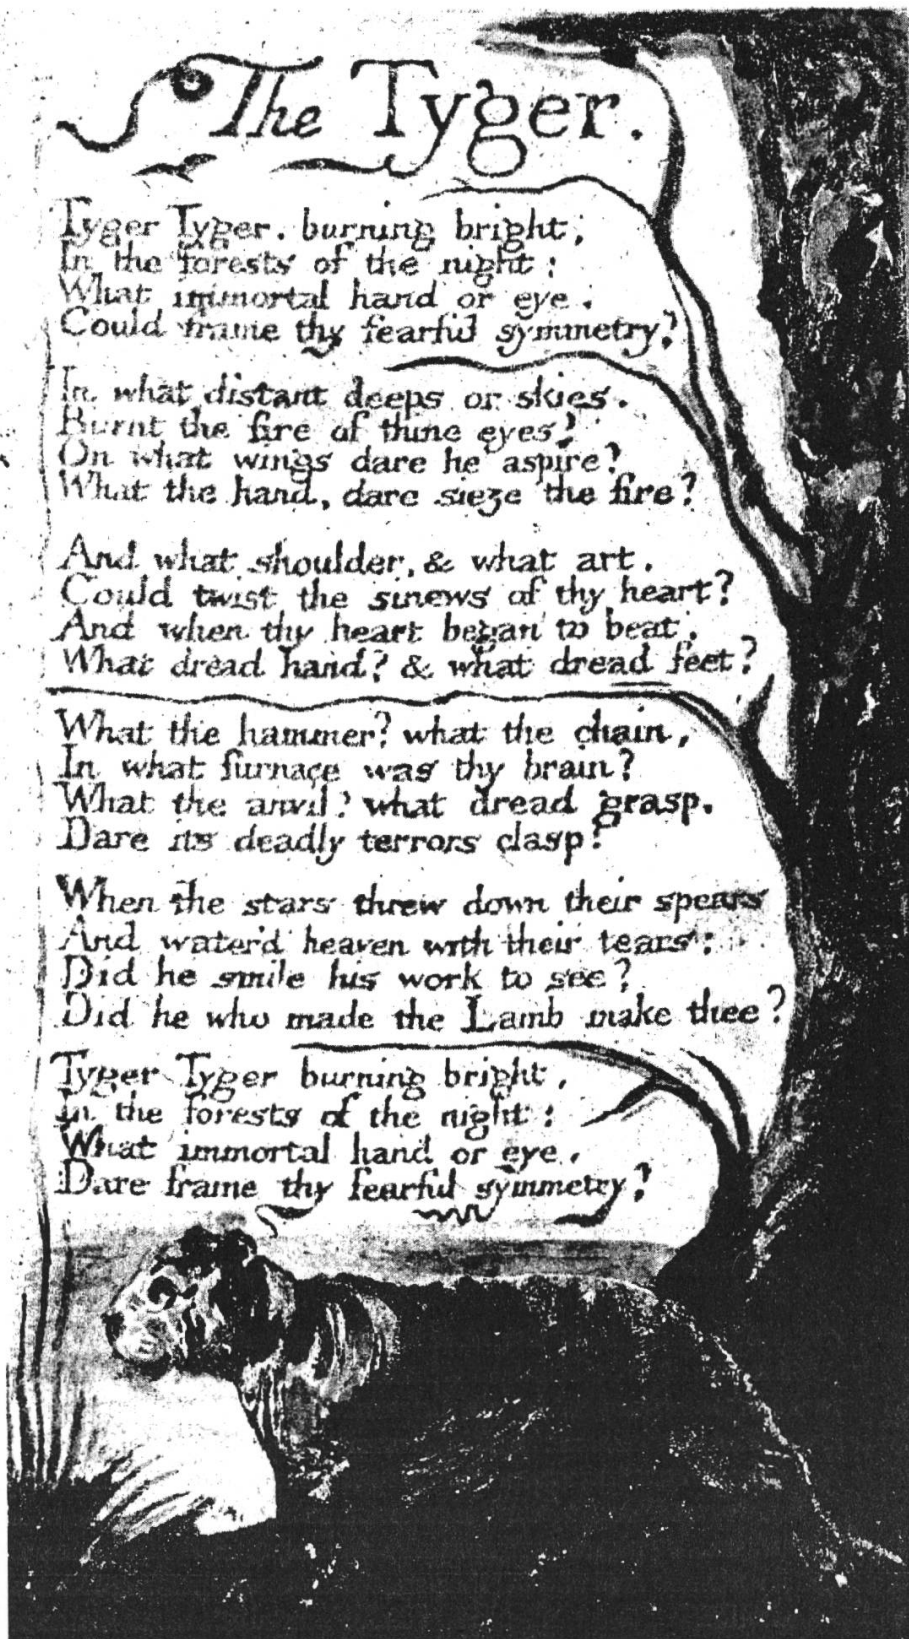 The Tyger.
Tyger Tyger. burning bright,
In the forests of the night:
What immortal hand or eye.
Could frame thy fearful symmetry?
In what distant deeps or skies.
Burnt the fire of thine eyes?
On what wings dare he aspire?
What the hand, dare sieze the fire?
And what shoulder, & what art.
Could twist the sinews of thy heart?
And when thy heart began to beat,
What dread hand? & what dread feet?
What the hammer? what the chain,
In what furnace was thy brain?
What the anvil? what dread grasp.
Dare its deadly terrors clasp?
When the stars threw down their spears
And water'd heaven with their tears:
Did he smile his work to see?
Did he who made the Lamb make thee?
Tyger Tyger burning bright,
In the forests of the night:
What immortal hand or eye,
Dare frame thy fearful symmetry?